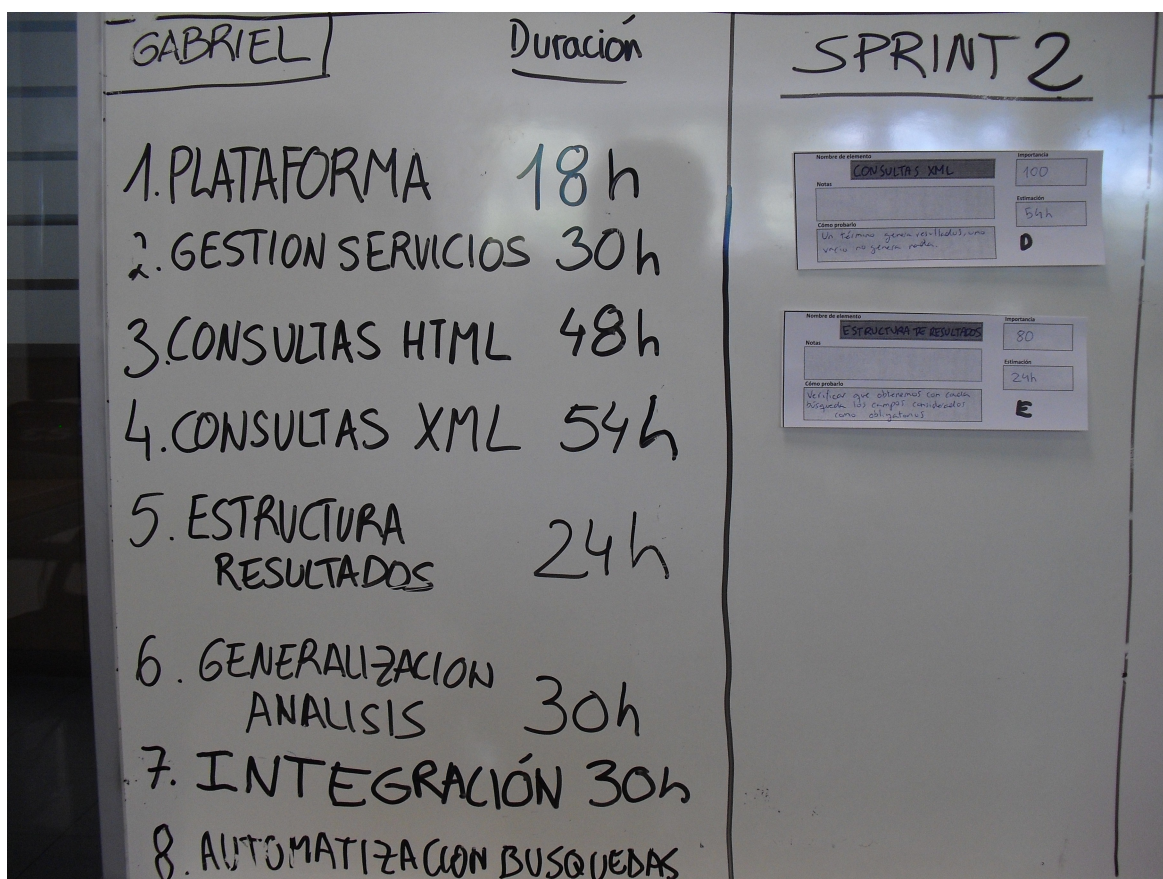 GABRIEL Duración
1. PLATAFORMA 18h
2. GESTION SERVICIOS 30h
3. CONSULTAS HTML 48h
4. CONSULTAS XML 54h
5. ESTRUCTURA
RESULTADOS 24h
6. GENERALIZACION
ANALISIS 30h
7. INTEGRACIÓN 30h
8. AUTOMATIZACION BUSQUEDAS
SPRINT 2
Nombre de elemento Importancia
CONSULTAS XML 100
Notas
Estimación
54h
Cómo probarlo
Un término genera resultados, uno
vacio no genera nada.
D
Nombre de elemento Importancia
ESTRUCTURA DE RESULTADOS 80
Notas
Estimación
24h
Cómo probarlo
Verificar que obtenemos con cada
búsqueda los campos considerados
como obligatorios
E